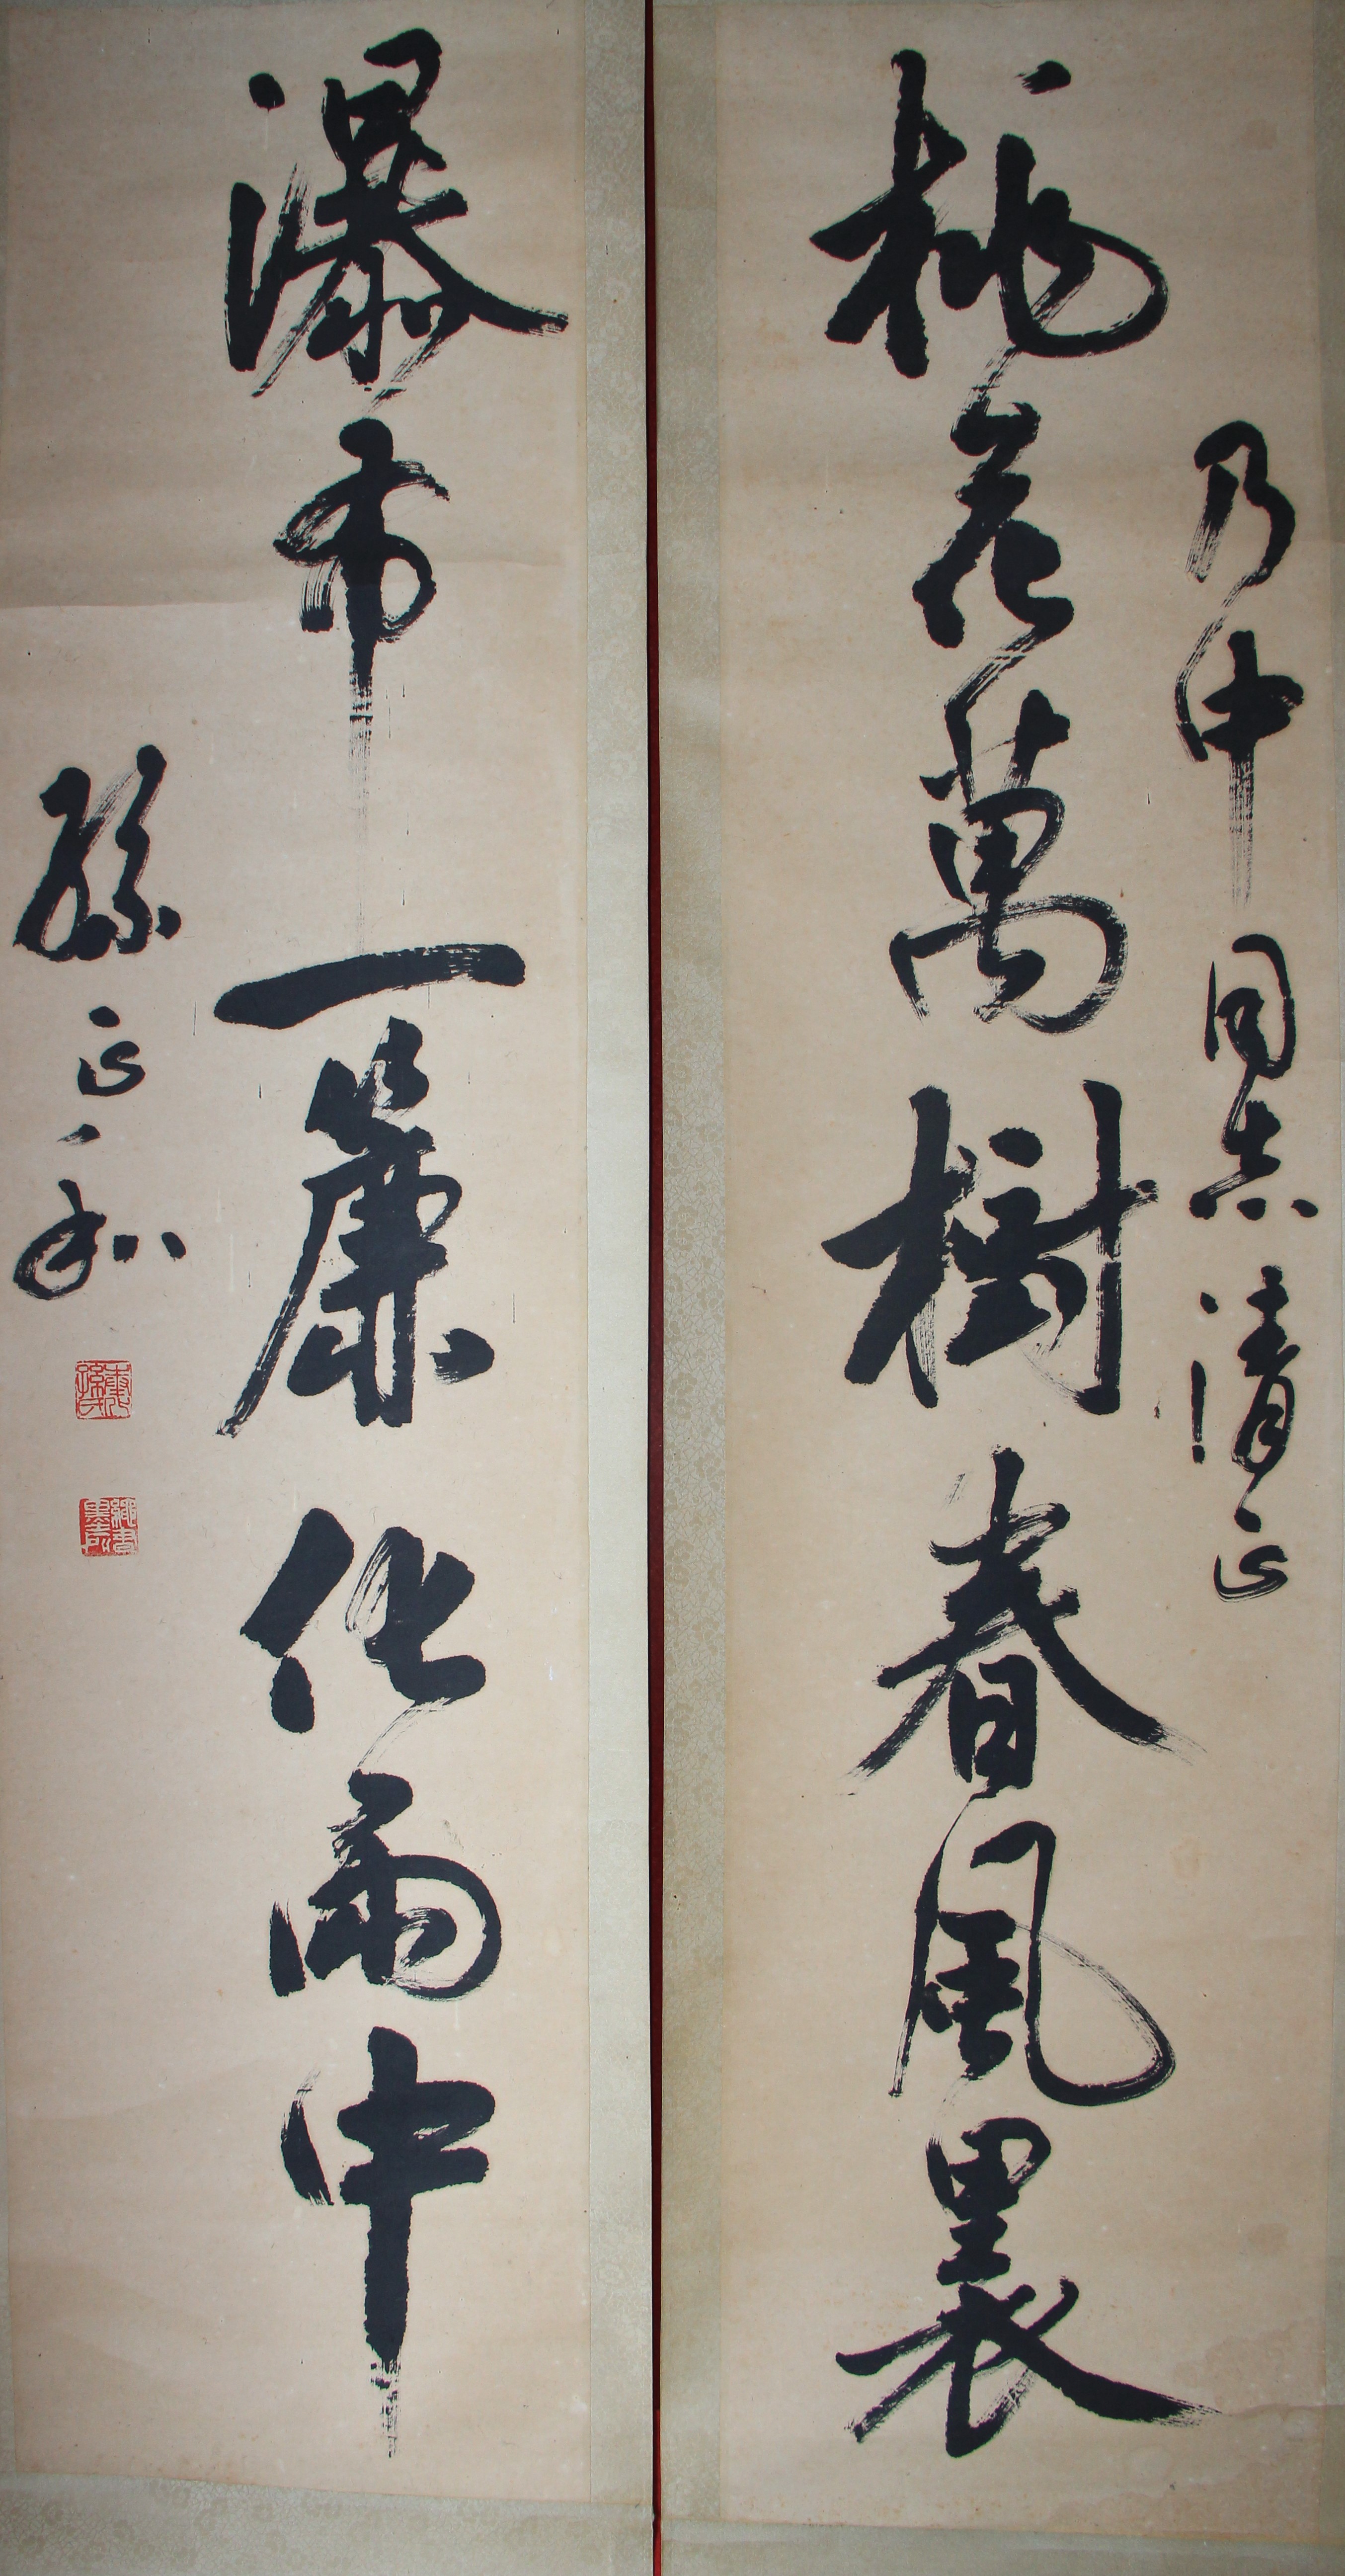 乃中同志清正
桃花萬樹春風裏
瀑布一簾化雨中
孫正和